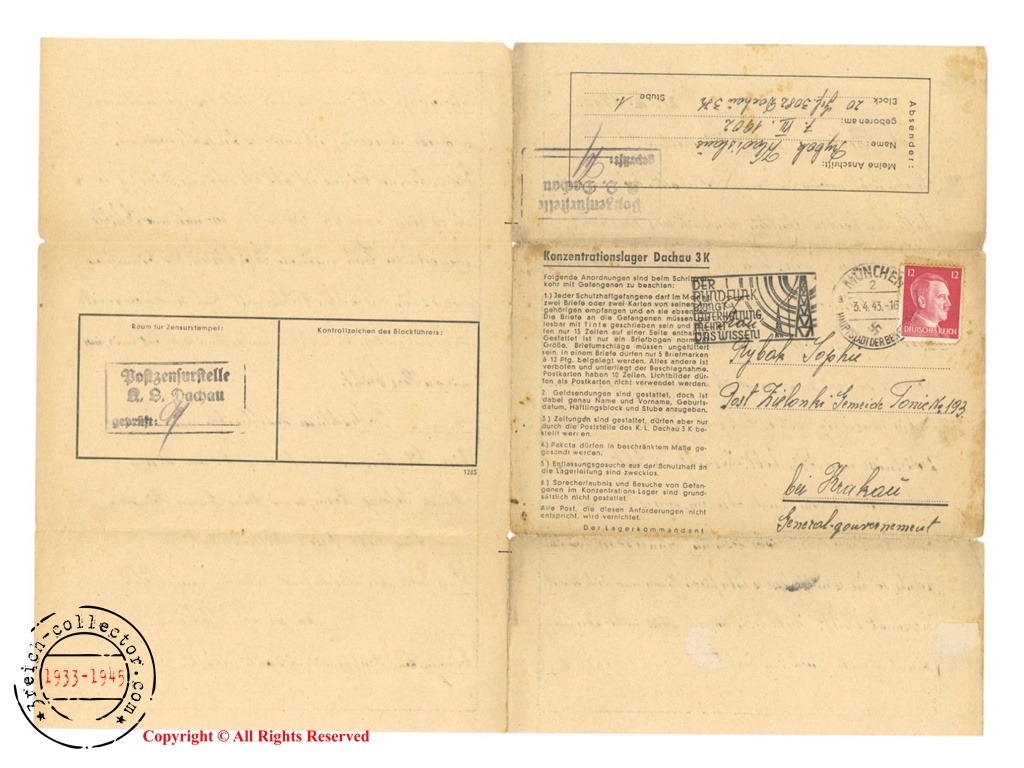 Absender:
Meine Anschrift:
Name: Rybak Wladislaus
geboren am: 7. III. 1902
Block 20 Gef. 3082 Dachau 3K Stube 1.
Postzensurstelle
K. L. Dachau
geprüft:
Konzentrationslager Dachau 3 K
Folgende Anordnungen sind beim Schriftver-
kehr mit Gefangenen zu beachten:
1.) Jeder Schutzhaftgefangene darf im Monat
zwei Briefe oder zwei Karten von seinen An-
gehörigen empfangen und an sie absenden.
Die Briefe an die Gefangenen müssen gut
lesbar mit Tinte geschrieben sein und
fen nur 15 Zeilen auf einer Seite enthalten.
Gestattet ist nur ein Briefbogen normaler
Größe. Briefumschläge müssen ungefüttert
sein. In einem Briefe dürfen nur 5 Briefmarken
à 12 Pfg. beigelegt werden. Alles andere ist
verboten und unterliegt der Beschlagnahme.
Postkarten haben 10 Zeilen. Lichtbilder dür-
fen als Postkarten nicht verwendet werden.
2. Geldsendungen sind gestattet, doch ist
dabei genau Name und Vorname, Geburts-
datum, Häftlingsblock und Stube anzugeben.
3.) Zeitungen sind gestattet, dürfen aber nur
durch die Poststelle des K. L. Dachau 3 K be-
stellt werden.
4.) Pakete dürfen in beschränktem Maße ge-
gesandt werden.
5.) Entlassungsgesuche aus der Schutzhaft an
die Lagerleitung sind zwecklos.
6.) Sprecherlaubnis und Besuche von Gefan-
genen im Konzentrations-Lager sind grund-
sätzlich nicht gestattet.
Alle Post, die diesen Anforderungen nicht
entspricht, wird vernichtet.
Der Lagerkommandant
DER
RUNDFUNK
BRINGT
UNTERHALTUNG
MEHRT
DAS WISSEN!
MÜNCHEN
2
3.4.43.-16
HAUPTSTADT DER BEW
12 12
DEUTSCHES REICH
Rybak Sophie
Post Zielonki Gemeide Tonie No 193.
bei Krakau
General-gouvernement
Raum für Zensurstempel: Kontrollzeichen des Blockführers:
Postzensurstelle
K. L. Dachau
geprüft:
1285
3reich-collector.com
1933-1945
Copyright © All Rights Reserved